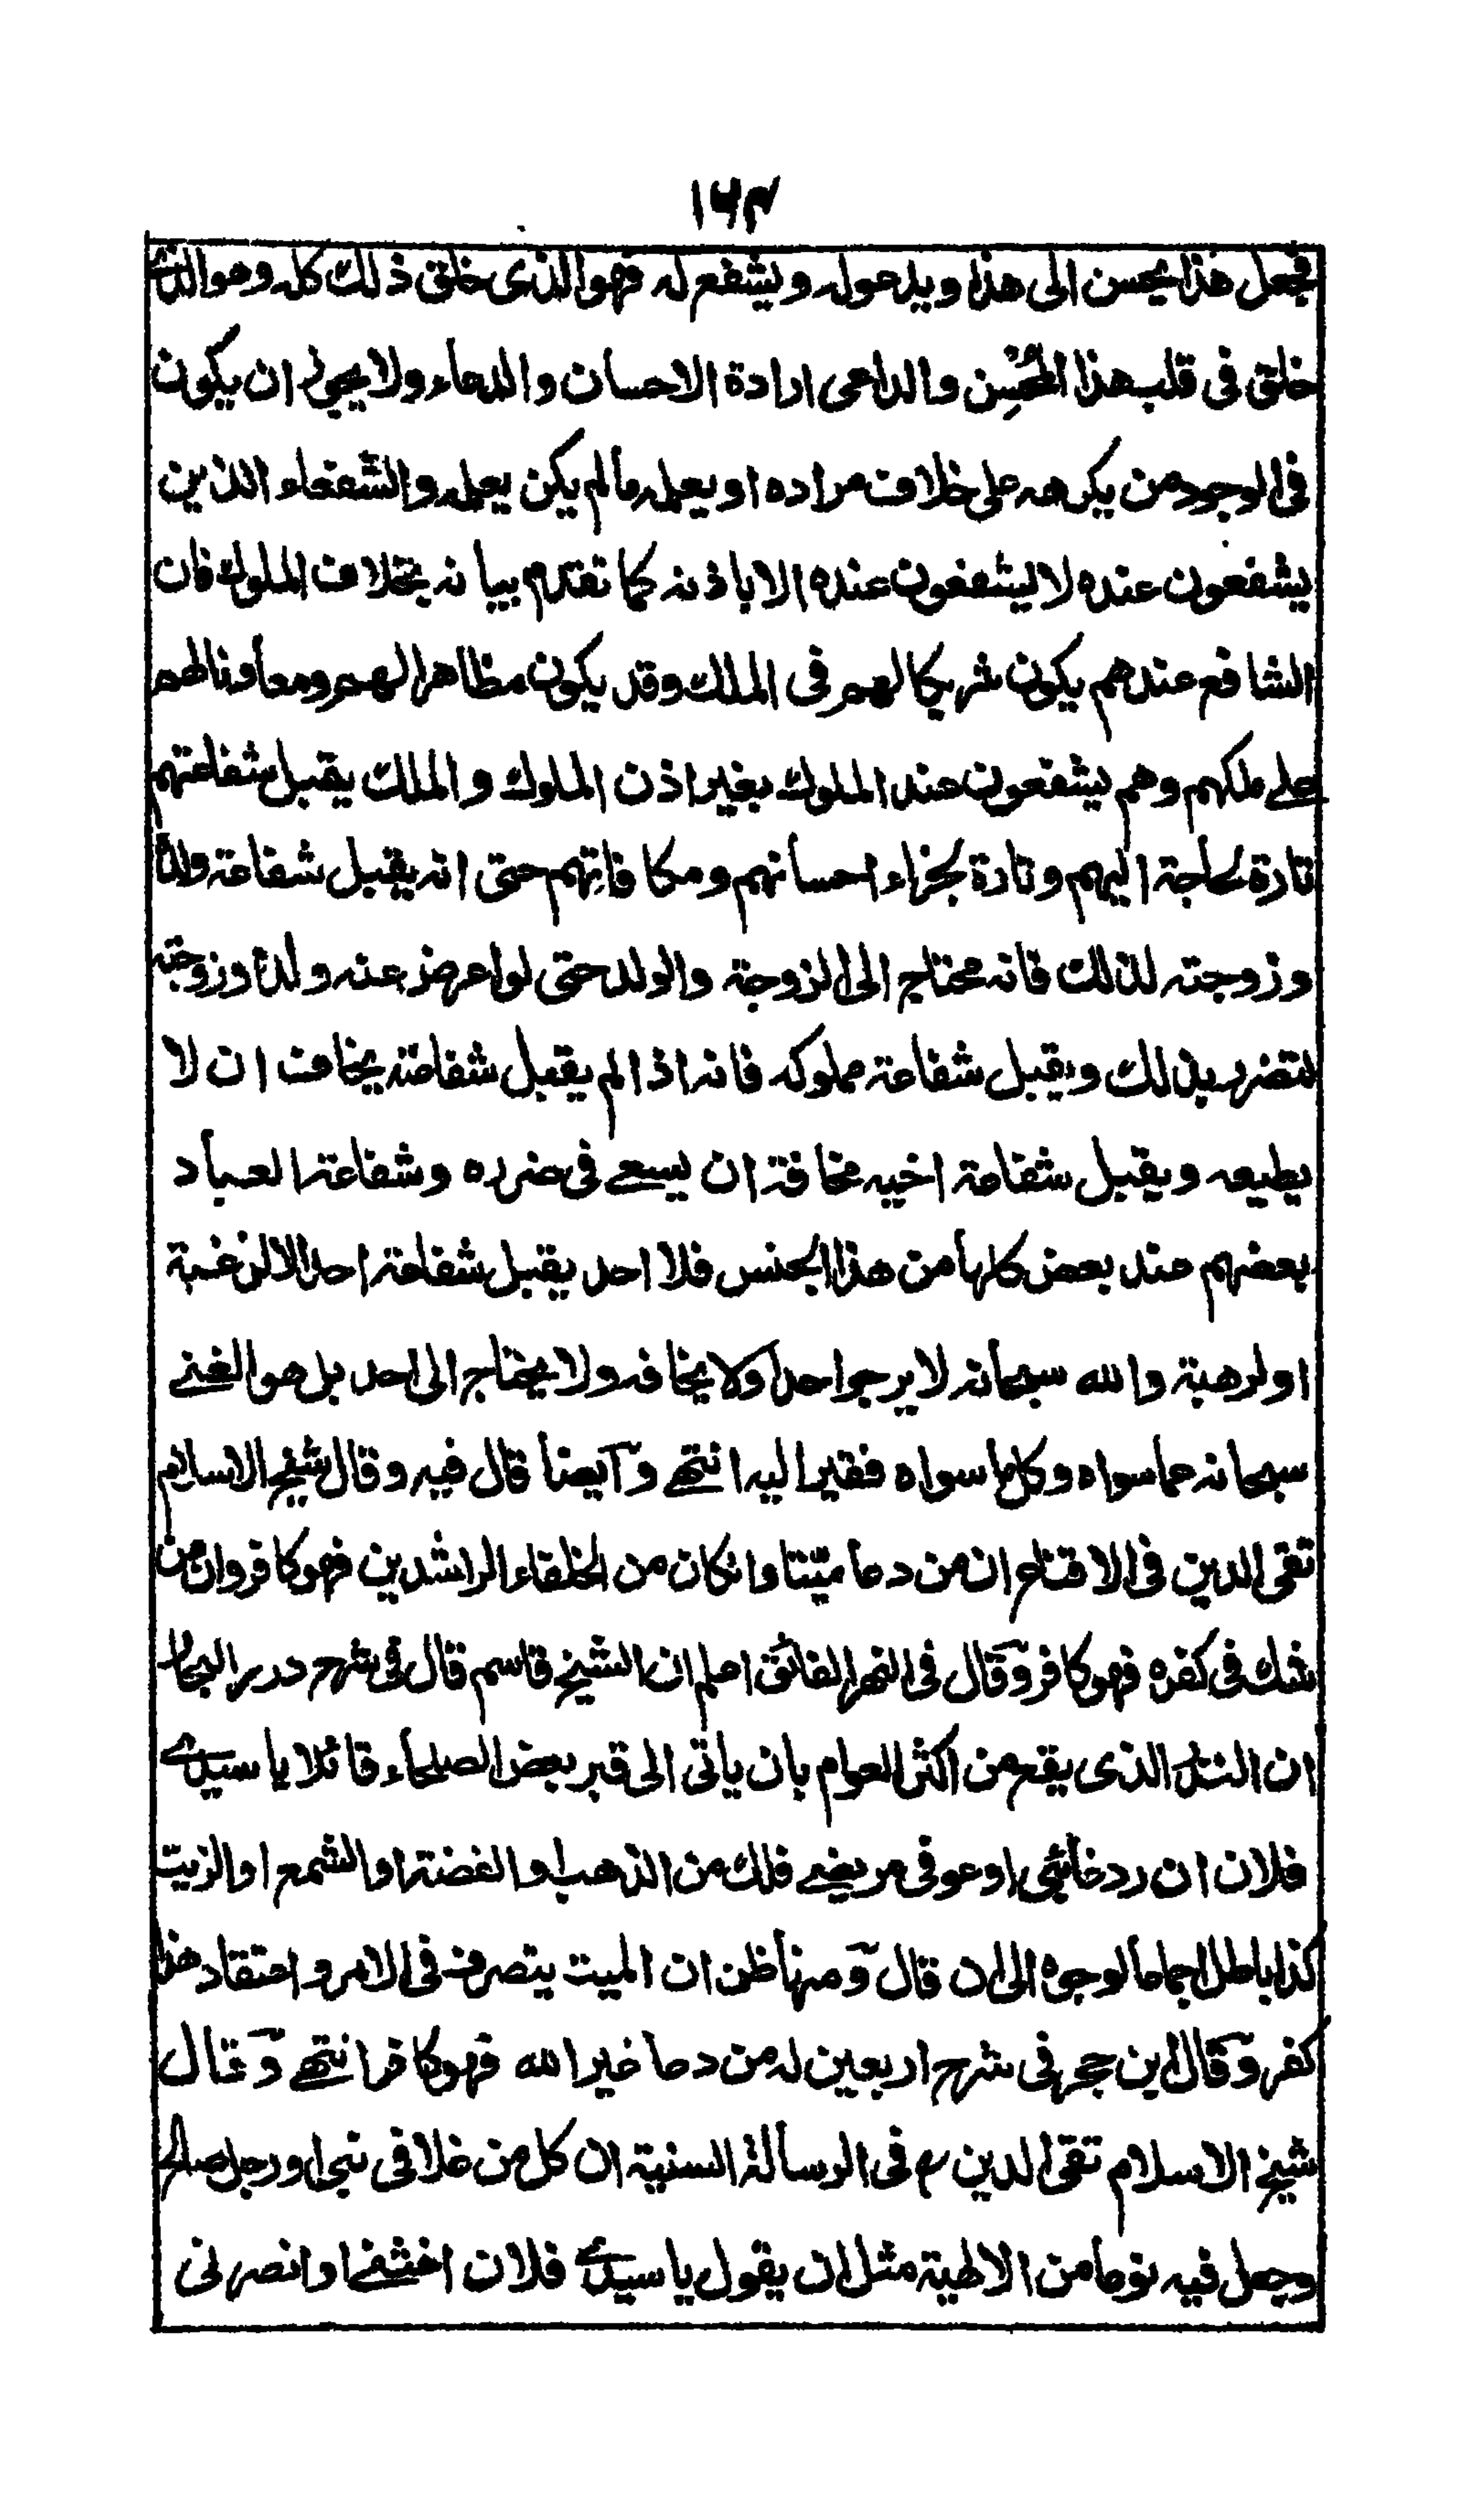 ١٦٤
فجعل هذا يحسن الى هذا ويدعوله ويشفع له فهو الذى خلق ذلك كله وهو الذى
خلق فى قلب هذا المحسن والداعى ارادة الاحسان والدعاء ولا يجوز ان يكون
فى الوجود من يكرهه على خلاف مراده او يعمله مالم يكن يعمله والشفعاء الذين
يشفعون عنده لا يشفعون عنده الا باذنه كما تقدم بيانه بخلاف الملوك فان
الشافع عندهم يكون شريكا لهم فى الملك وقد يكون مظاهرا لهم ومعاونا لهم
على ملكهم وهم يشفعون عند الملوك بغير اذن الملوك والملك يقبل شفاعتهم
تارة لحاجة اليهم وتارة لجزاء احسانهم ومكافاتهم حتى انه يقبل شفاعة ولده
وزوجته لذلك فانه محتاج الى الزوجة والولد حتى لو اعرض عنه ولده وزوجته
لتضرر بذلك ويقبل شفاعة مملوكه فانه اذا لم يقبل شفاعته يخاف ان لا
يطيعه ويقبل شفاعة اخيه مخافة ان يسعى فى ضرره وشفاعة العباد
بعضهم عند بعض كلها من هذا الجنس فلا احد يقبل شفاعة احد الا لرغبة
او لرهبة والله سبحانه لا يرجو احدا ولا يخافه ولا يحتاج الى احد بل هو الغنے
سبحانه عما سواه وكل ما سواه فقير اليه انتهى وآيضا قال فيه وقال شيخ الاسلام
تقى الدين فى الاقناع ان من دعا ميتا وان كان من الخلفاء الراشدين فهو كافر وان من
شك فى كفره فهو كافر وقال فى النهر الفائق اعلم ان الشيخ قاسم قال فى شرح درر البحار
ان النذر الذى يقع من اكثر العوام بان ياتى الى قبر بعض الصلحاء قائلا يا سيدے
فلان ان رد غائبى او عوفى مريضے فلك من الذهب او الفضة او الشمع او الزيت
كذا باطل اجماعا لوجوه الى ان قال ومنها ظن ان الميت يتصرف فى الامر واعتقاد هذا
كفر وقال ابن حجر فى شرح اربعين له من دعا غير الله فهو كافر انتهى وقال
شيخ الاسلام تقى الدين رح فى الرسالة السنية ان كل من غلا فى نبى او رجل صالح
وجعل فيه نوعا من الالهية مثل ان يقول يا سيدے فلان اغثنے او انصرنى